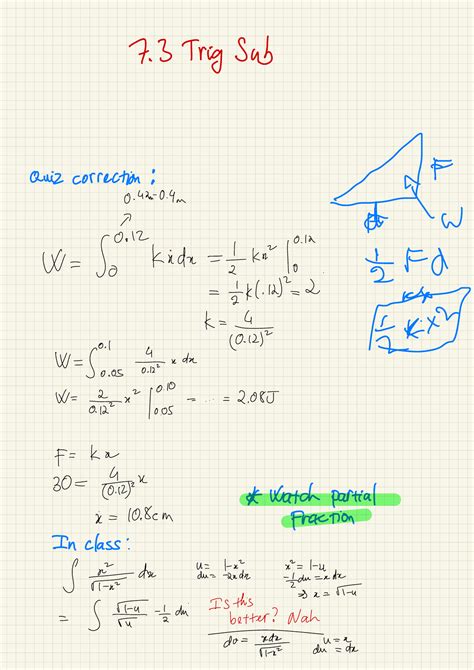 7.3 Trig Sub
Quiz correction :
0.42m-0.4m
W = ∫₀^0.12 kx dx = 1/2 kx² |₀^0.12
= 1/2 k(.12)² = 2
k = 4/(0.12)²
F
d
W
1/2 Fd
kx
1/2 kx²
W = ∫_0.05^0.1 4/0.12² x dx
W = 2/0.12² x² |_0.05^0.10 = ... = 2.08J
F = kx
30 = 4/(0.12)² x
x = 10.8cm
* Watch partial
Fraction
In class :
∫ x²/√1-x² dx
u = 1-x²
du = -2xdx
x² = 1-u
-1/2 du = x dx
⇒ x = √1-u
= ∫ √1-u/√u -1/2 du
Is this
better? Nah
dv = xdx/√1-x²
u = x
du = dx